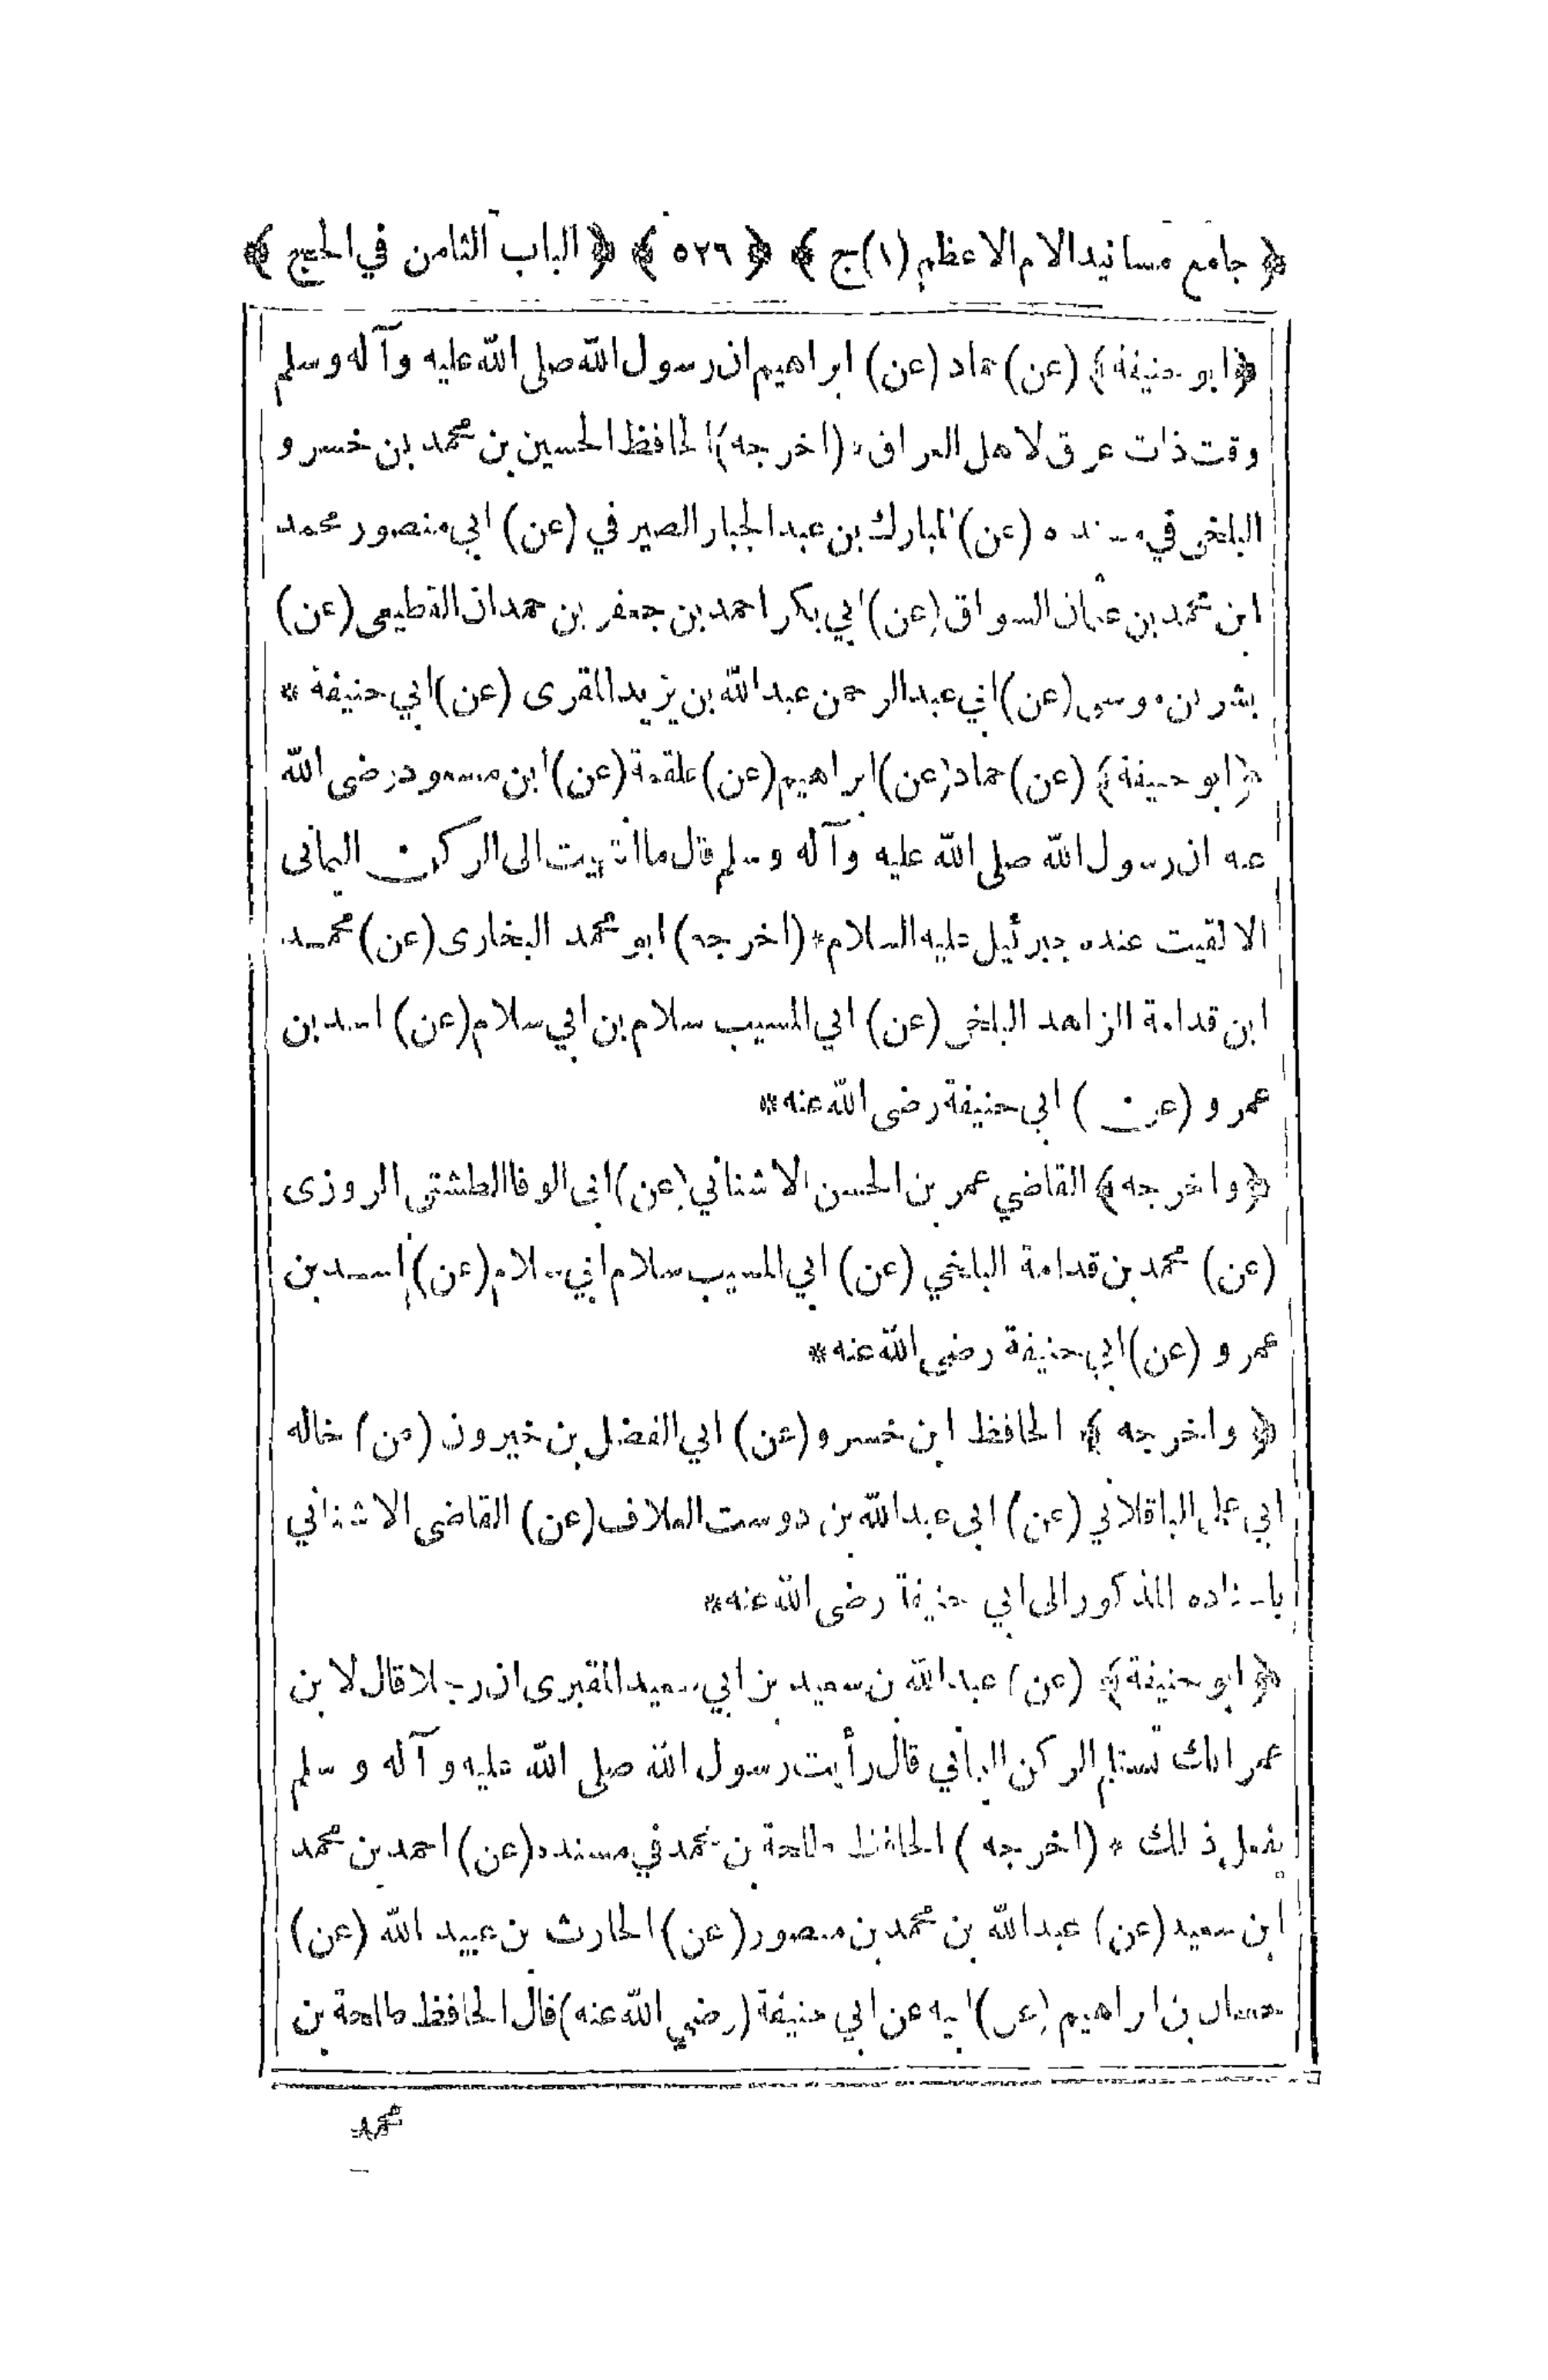 ﴿ جامع مسانيد الام الاعظم (١) ج ﴾ ﴿ ٥٢٦ ﴾ ﴿ الباب الثامن في الحج ﴾
﴿ ابو حنيفة ﴾ (عن) حماد (عن) ابراهيم ان رسول الله صلى الله عليه وآله وسلم
وقت ذات عرق لاهل العراق * (اخرجه) الحافظ الحسين بن محمد بن خسرو
البلخى في مسنده (عن) المبارك بن عبد الجبار الصيرفي (عن) ابي منصور محمد
ابن محمد بن عثمان السواق (عن) ابي بكر احمد بن جعفر بن حمدان القطيعى (عن)
بشر بن موسى (عن) ابي عبد الرحمن عبد الله بن يزيد المقرى (عن) ابي حنيفة *
﴿ ابو حنيفة ﴾ (عن) حماد (عن) ابراهيم (عن) علقمة (عن) ابن مسعود رضى الله
عنه ان رسول الله صلى الله عليه وآله وسلم قال ما انتهيت الى الركن اليمانى
الا لقيت عنده جبرئيل عليه السلام * (اخرجه) ابو محمد البخارى (عن) محمد
ابن قدامة الزاهد البلخى (عن) ابي المسيب سلام بن ابي سلام (عن) اسد بن
عمرو (عن) ابي حنيفة رضى الله عنه *
﴿ واخرجه ﴾ القاضي عمر بن الحسن الاشناني (عن) ابى الوفا الطشتى الروزى
(عن) محمد بن قدامة البلخي (عن) ابي المسيب سلام ابي سلام (عن) اسد بن
عمرو (عن) ابي حنيفة رضى الله عنه *
﴿ واخرجه ﴾ الحافظ ابن خسرو (عن) ابي الفضل بن خيرون (عن) خاله
ابي على الباقلاني (عن) ابى عبد الله بن دوست العلاف (عن) القاضى الاشناني
باسناده المذكور الى ابي حنيفة رضى الله عنه *
﴿ ابو حنيفة ﴾ (عن) عبد الله بن سعيد بن ابي سعيد المقبرى ان رجلا قال لابن
عمر انك تستلم الركن اليماني قال رأيت رسول الله صلى الله عليه وآله وسلم
يفعل ذلك * (اخرجه) الحافظ طلحة بن محمد في مسنده (عن) احمد بن محمد
ابن سعيد (عن) عبد الله بن محمد بن منصور (عن) الحارث بن عبيد الله (عن)
حسان بن ابراهيم (عن) ابيه عن ابي حنيفة (رضي الله عنه) قال الحافظ طلحة بن
محمد